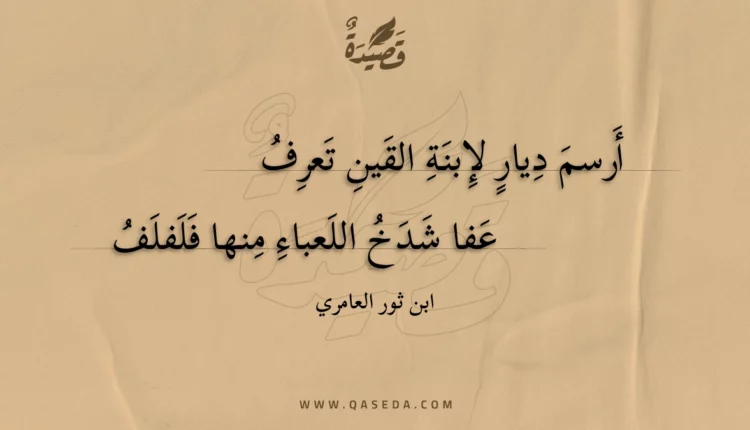 قَصِيدَةٌ
أَرسمَ دِيارٍ لإِبنَةِ القَينِ تَعرِفُ
عَفا شَدَخُ اللَعباءِ مِنها فَلَفلَفُ
ابن ثور العامري
WWW.QASEDA.COM